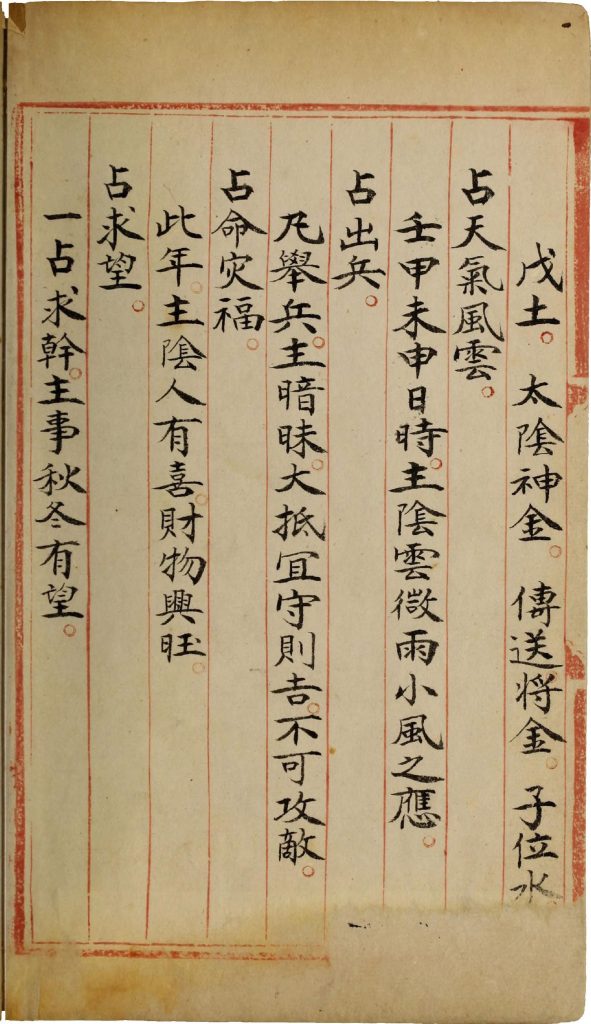 戊土。太陰神金。傳送將金。子位水
占天氣風雲。
壬甲未申日時。主陰雲微雨小風之應。
占出兵。
凡舉兵。主暗昧。大抵宜守則吉。不可攻敵。
占命灾福。
此年。主陰人有喜。財物興旺。
占求望。
一占求幹。主事秋冬有望。